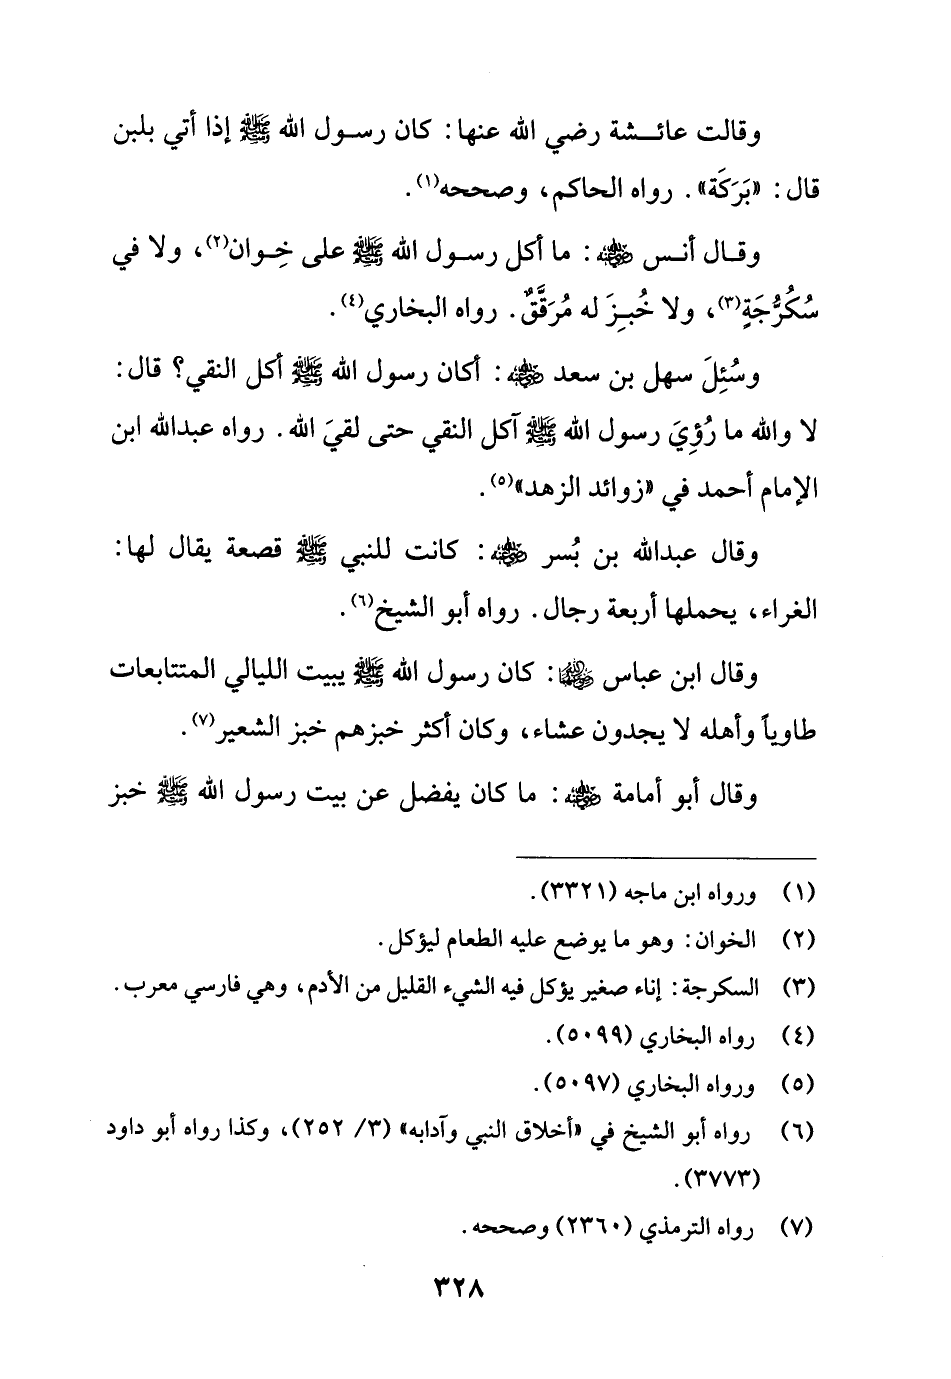 وقالت عائـشة رضي الله عنها: كان رسول الله ﷺ إذا أتي بلبن
قال: «بَرَكَة». رواه الحاكم، وصححه(١).
وقال أنس رضي الله عنه: ما أكل رسول الله ﷺ على خِوان(٢)، ولا في
سُكُرُّجَةٍ(٣)، ولا خُبِزَ له مُرَقَّقٌ. رواه البخاري(٤).
وسُئِلَ سهل بن سعد رضي الله عنه: أكان رسول الله ﷺ أكل النقي؟ قال:
لا والله ما رُؤِيَ رسول الله ﷺ آكل النقي حتى لقيَ الله. رواه عبدالله ابن
الإمام أحمد في «زوائد الزهد»(٥).
وقال عبدالله بن بُسر رضي الله عنه: كانت للنبي ﷺ قصعة يقال لها:
الغراء، يحملها أربعة رجال. رواه أبو الشيخ(٦).
وقال ابن عباس رضي الله عنهما: كان رسول الله ﷺ يبيت الليالي المتتابعات
طاوياً وأهله لا يجدون عشاء، وكان أكثر خبزهم خبز الشعير(٧).
وقال أبو أمامة رضي الله عنه: ما كان يفضل عن بيت رسول الله ﷺ خبز
(١) ورواه ابن ماجه (٣٣٢١).
(٢) الخوان: وهو ما يوضع عليه الطعام ليؤكل.
(٣) السكرجة: إناء صغير يؤكل فيه الشيء القليل من الأدم، وهي فارسي معرب.
(٤) رواه البخاري (٥٠٩٩).
(٥) ورواه البخاري (٥٠٩٧).
(٦) رواه أبو الشيخ في «أخلاق النبي وآدابه» (٣/ ٢٥٢)، وكذا رواه أبو داود
(٣٧٧٣).
(٧) رواه الترمذي (٢٣٦٠) وصححه.
٣٢٨